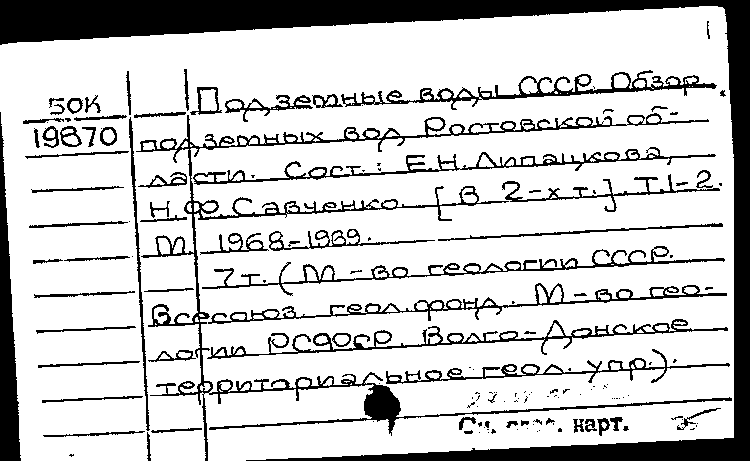 1
50К
19870
Подземные воды СССР. Обзор
подземных вод Ростовской об-
ласти. Сост.: Е.Н. Липацкова,
Н.Ф. Савченко. [В 2-х т.]. Т.1-2.
М. 1968-1989.
7т. (М-во геологии СССР.
Всесоюз. геол. фонд. М-во гео-
логии РСФСР. Волго-Донское
территориальное геол. упр.).
См. карт.